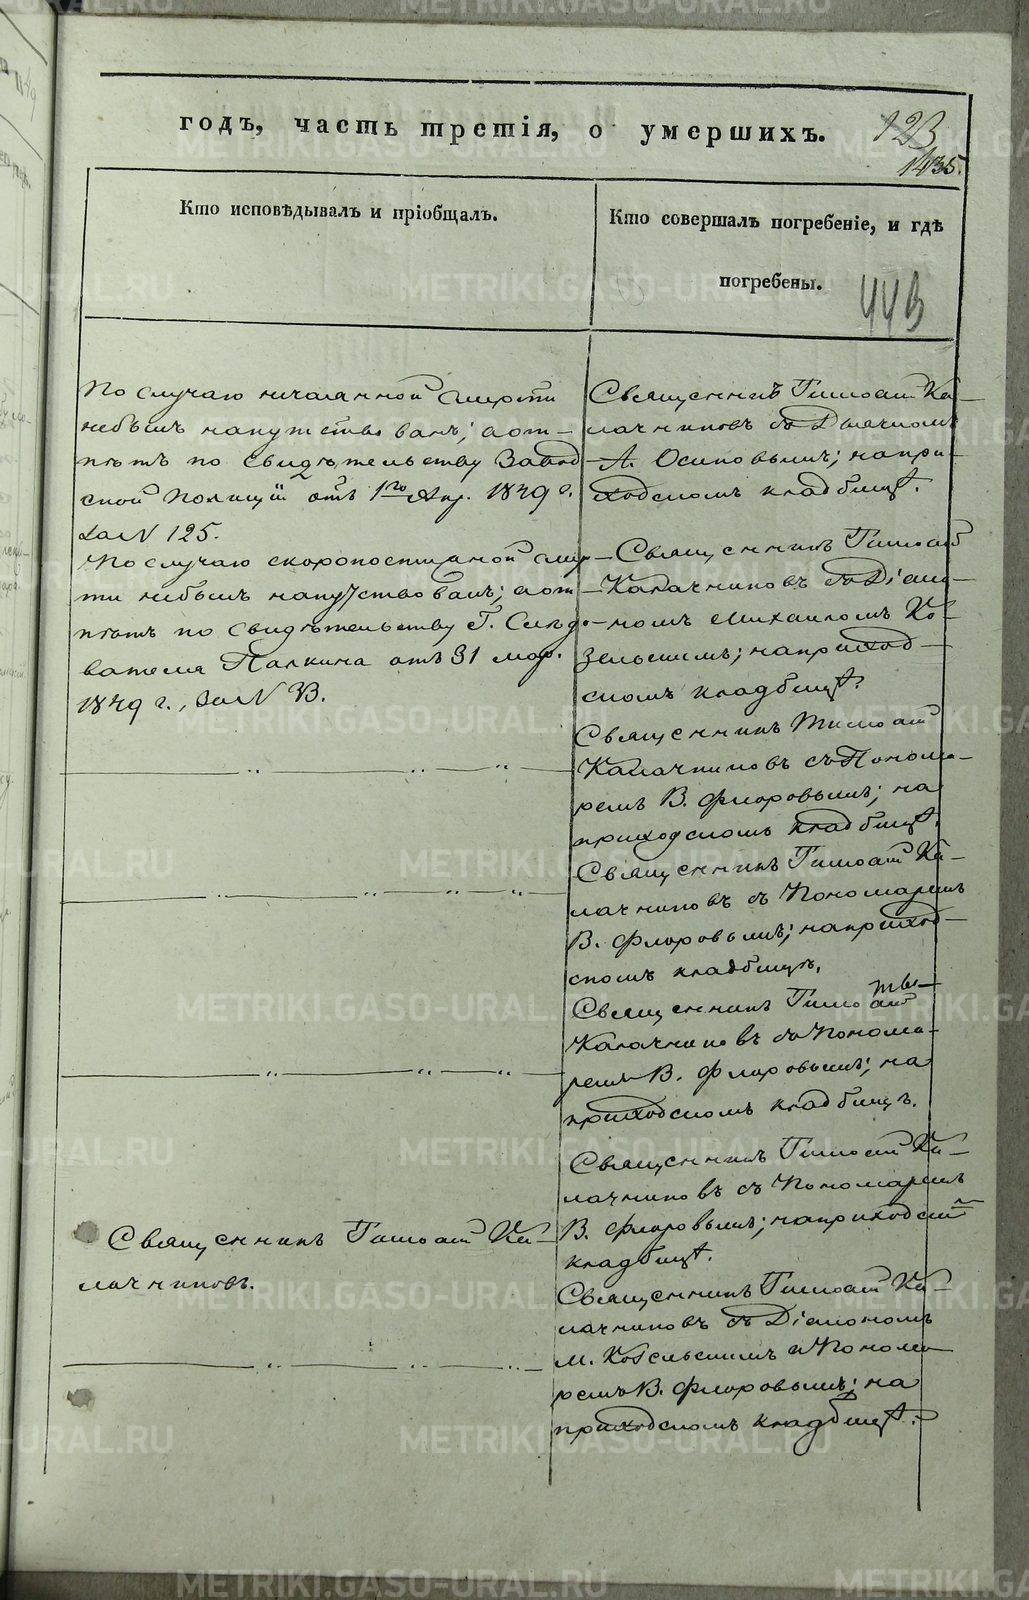 годъ, часть третія, о умершихъ.
123
1435.
Кто исповѣдывалъ и пріобщалъ.
Кто совершалъ погребеніе, и гдѣ
погребены.
443
По случаю нечаянной смерти
небылъ напутствованъ; а от-
пѣтъ по свидѣтельству Завод
ской Полиціи отъ 1го Апр. 1849 г.
за N 125.
По случаю скоропостижной смер-
ти небылъ напутствованъ; а от-
пѣтъ по свидѣтельству Г. Слѣдо-
вателя Палкина отъ 31 мар.
1849 г., за N
Священникъ Тимоѳей Ка-
лачниковъ съ Дьячкомъ
А. Осиповымъ; напри-
ходскомъ кладбищѣ.
Священникъ Тимоѳей
Калачниковъ съ Діако-
номъ Михаиломъ Ко-
зельскимъ; наприход-
скомъ кладбищѣ.
Священникъ Тимоѳей
Калачниковъ съ Понома-
ремъ В. Флоровымъ; на
приходскомъ кладбищѣ.
Священникъ Тимоѳей Ка-
лачниковъ съ Пономаремъ
В. Флоровымъ; наприход-
скомъ кладбищѣ.
Священникъ Тимоѳей
Калачниковъ съ Понома-
ремъ В. Флоровымъ; на
приходскомъ кладбищѣ.
Священникъ Тимоѳей Ка-
лачниковъ съ Пономаремъ
В. Флоровымъ; наприходск.
кладбищѣ.
Священникъ Тимоѳей Ка-
лачниковъ.
Священникъ Тимоѳей Ка-
лачниковъ съ Діакономъ
М. Козельскимъ и Понома-
ремъ В. Флоровымъ; на
приходскомъ кладбищѣ.
METRIKI.GASO-URAL.RU